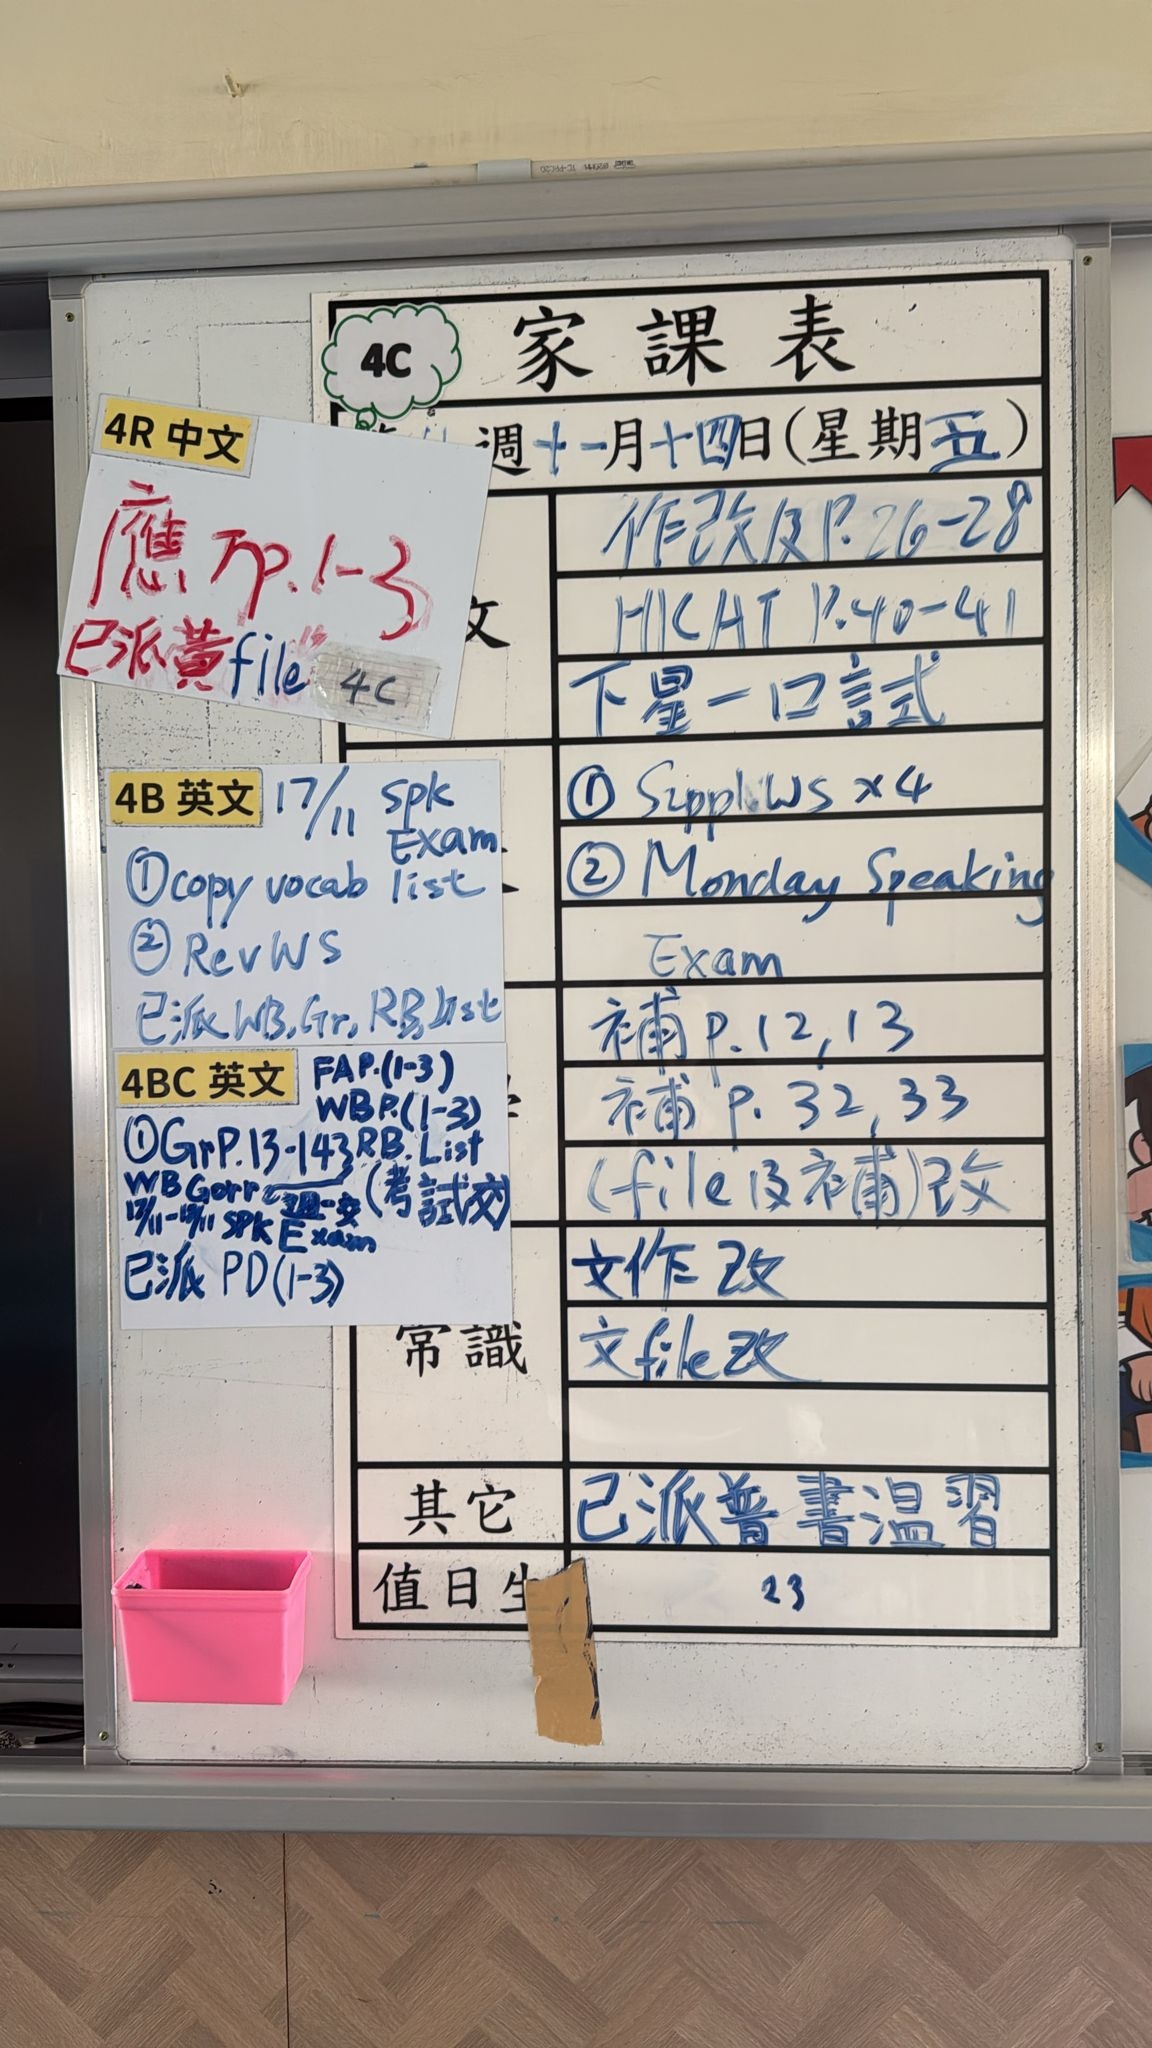 家課表
4C
週十一月十四日(星期五)
4R 中文
應 P.1-3
已派黃file
4C
文
作改及P.26-28
HKAT P.40-41
下星一口試
① Suppl.WS x4
② Monday Speaking
Exam
4B 英文 17/11 spk
Exam
① copy vocab list
② Rev WS
已派WB, Gr, RB, list
4BC 英文 FA P.(1-3)
WB P.(1-3)
① Gr P.13-14 RB. List
WB Corr 週一交 (考試交)
SPK Exam
已派 PD (1-3)
補 P.12,13
補 P. 32,33
(file及補)改
常識
文作改
文file改
其它
已派普書温習
值日生
23